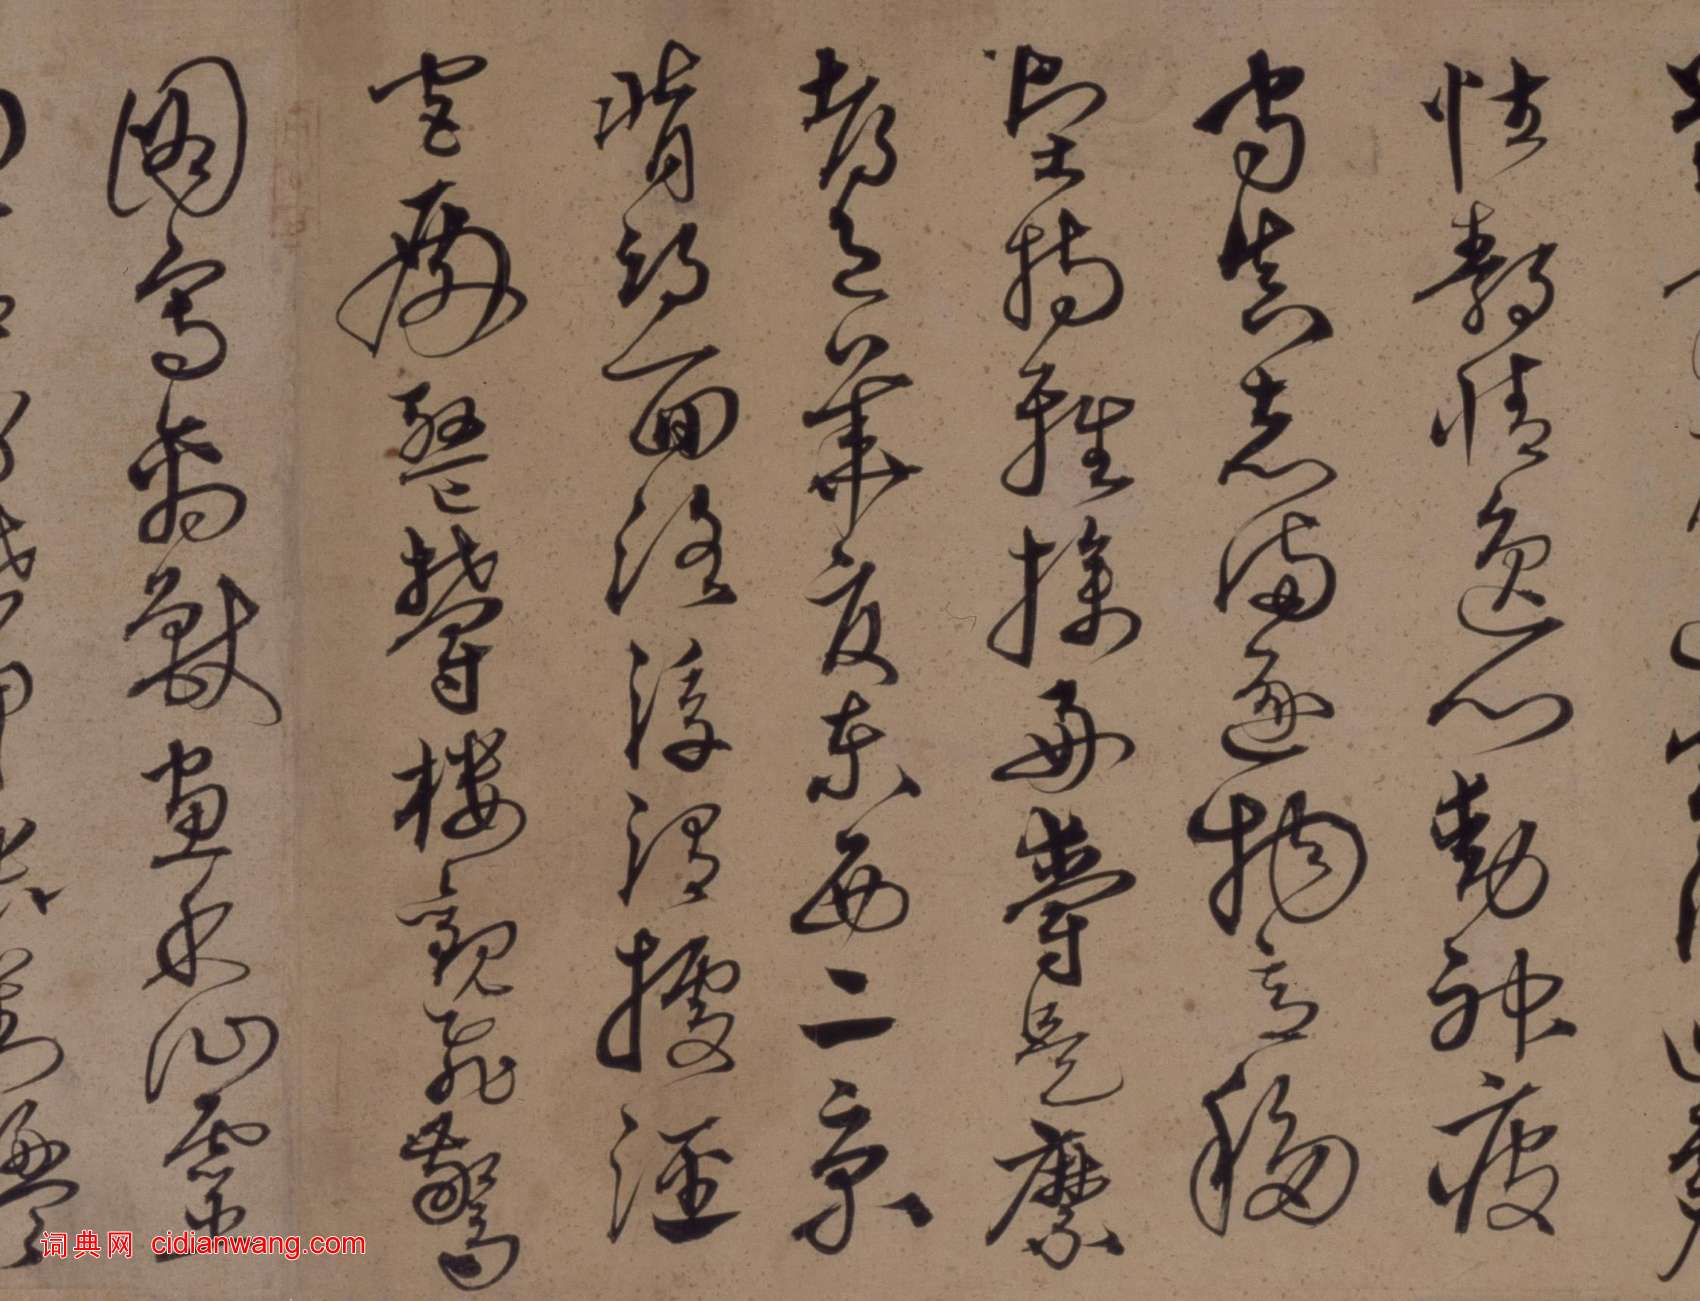 性靜情逸心動神疲
守真志滿逐物意移
堅持雅操好爵自縻
都邑華夏東西二京
背邙面洛浮渭據涇
宮殿盤鬱樓觀飛驚
圖寫禽獸畫采仙靈
词典网 cidianwang.com